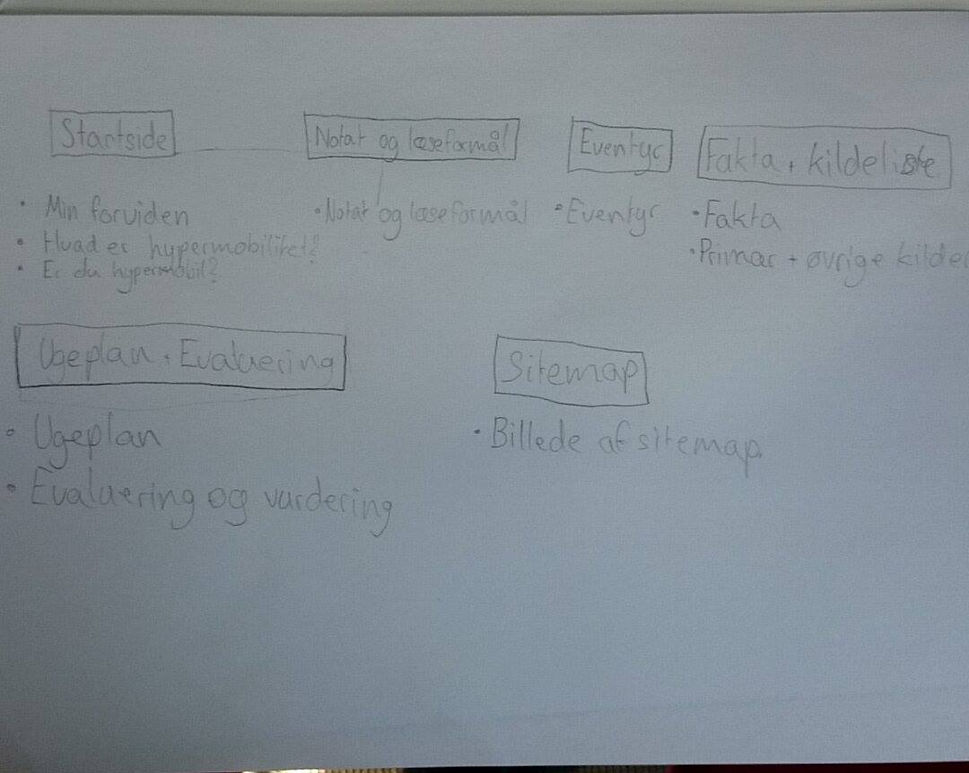 Startside
• Min forviden
• Hvad er hypermobilitet?
• Er du hypermobil?
Notat og læseformål
• Notat og læseformål
Eventyr
• Eventyr
Fakta + kildeliste
• Fakta
• Primær + øvrige kilder
Ugeplan + Evaluering
• Ugeplan
• Evaluering og vurdering
Sitemap
• Billede af sitemap